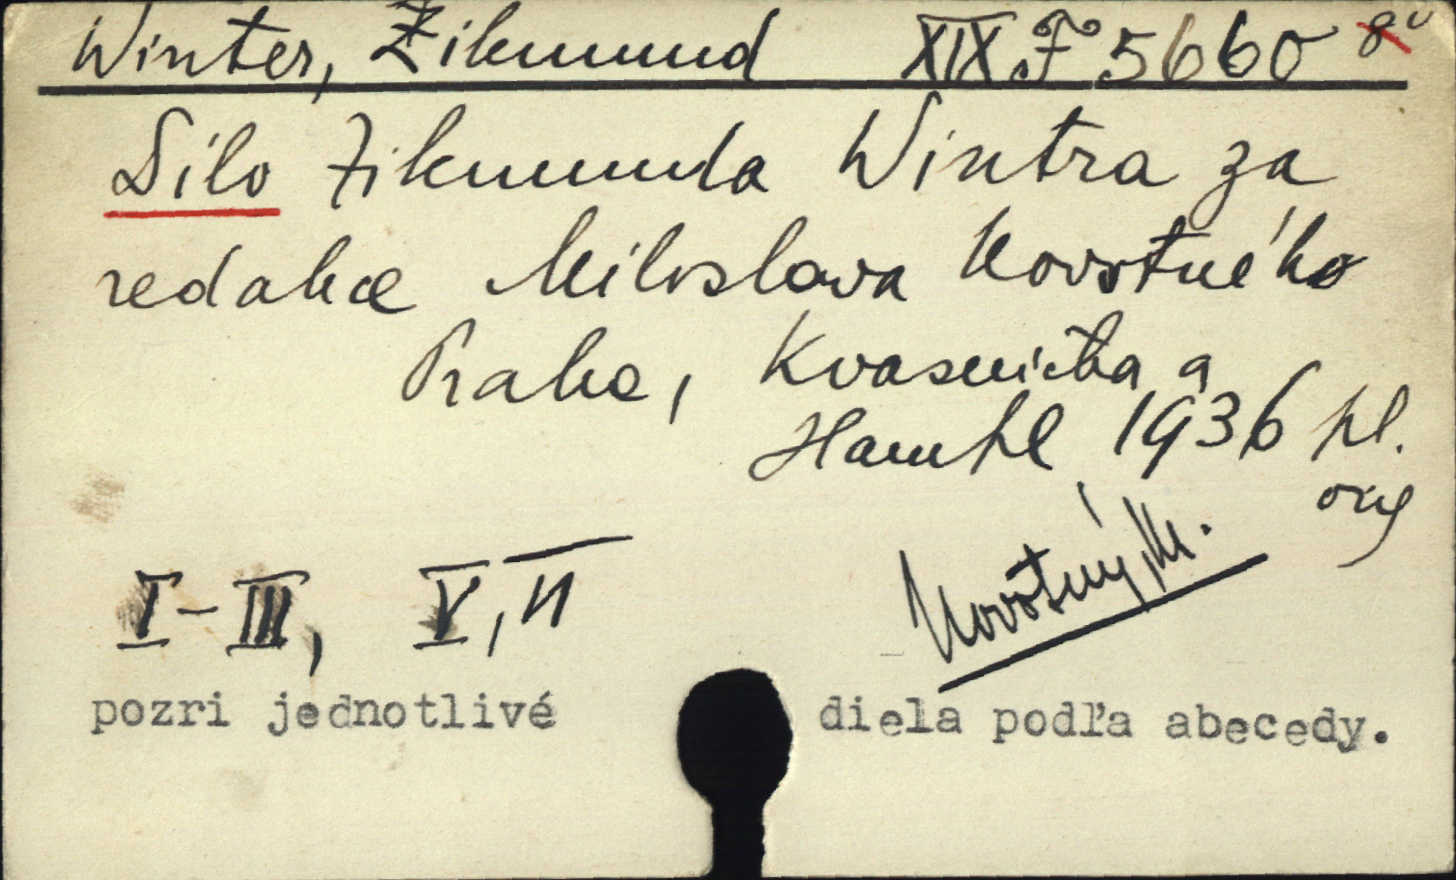 Winter, Zikmund XIX F 5660 8°
Dílo Zikmunda Wintra za
redakce Miloslava Novotného
Praha, Kvasnička a
Hampl 1936 pl.
I-III, V, VI
Novotný, M.
pozri jednotlivé diela podľa abecedy.